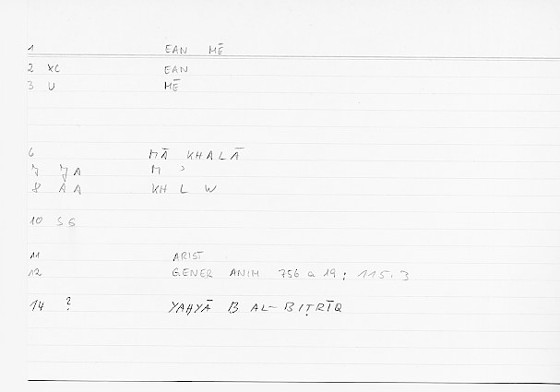 1 EAN MĒ
2 XC EAN
3 U MĒ
6 MĀ KHALĀ
7 JA M ʾ
8 AA KH L W
10 SG
11 ARIST
12 GENER ANIM 756 a 19 ; 115.3
14 ? YAḤYĀ B AL-BIṬRĪQ